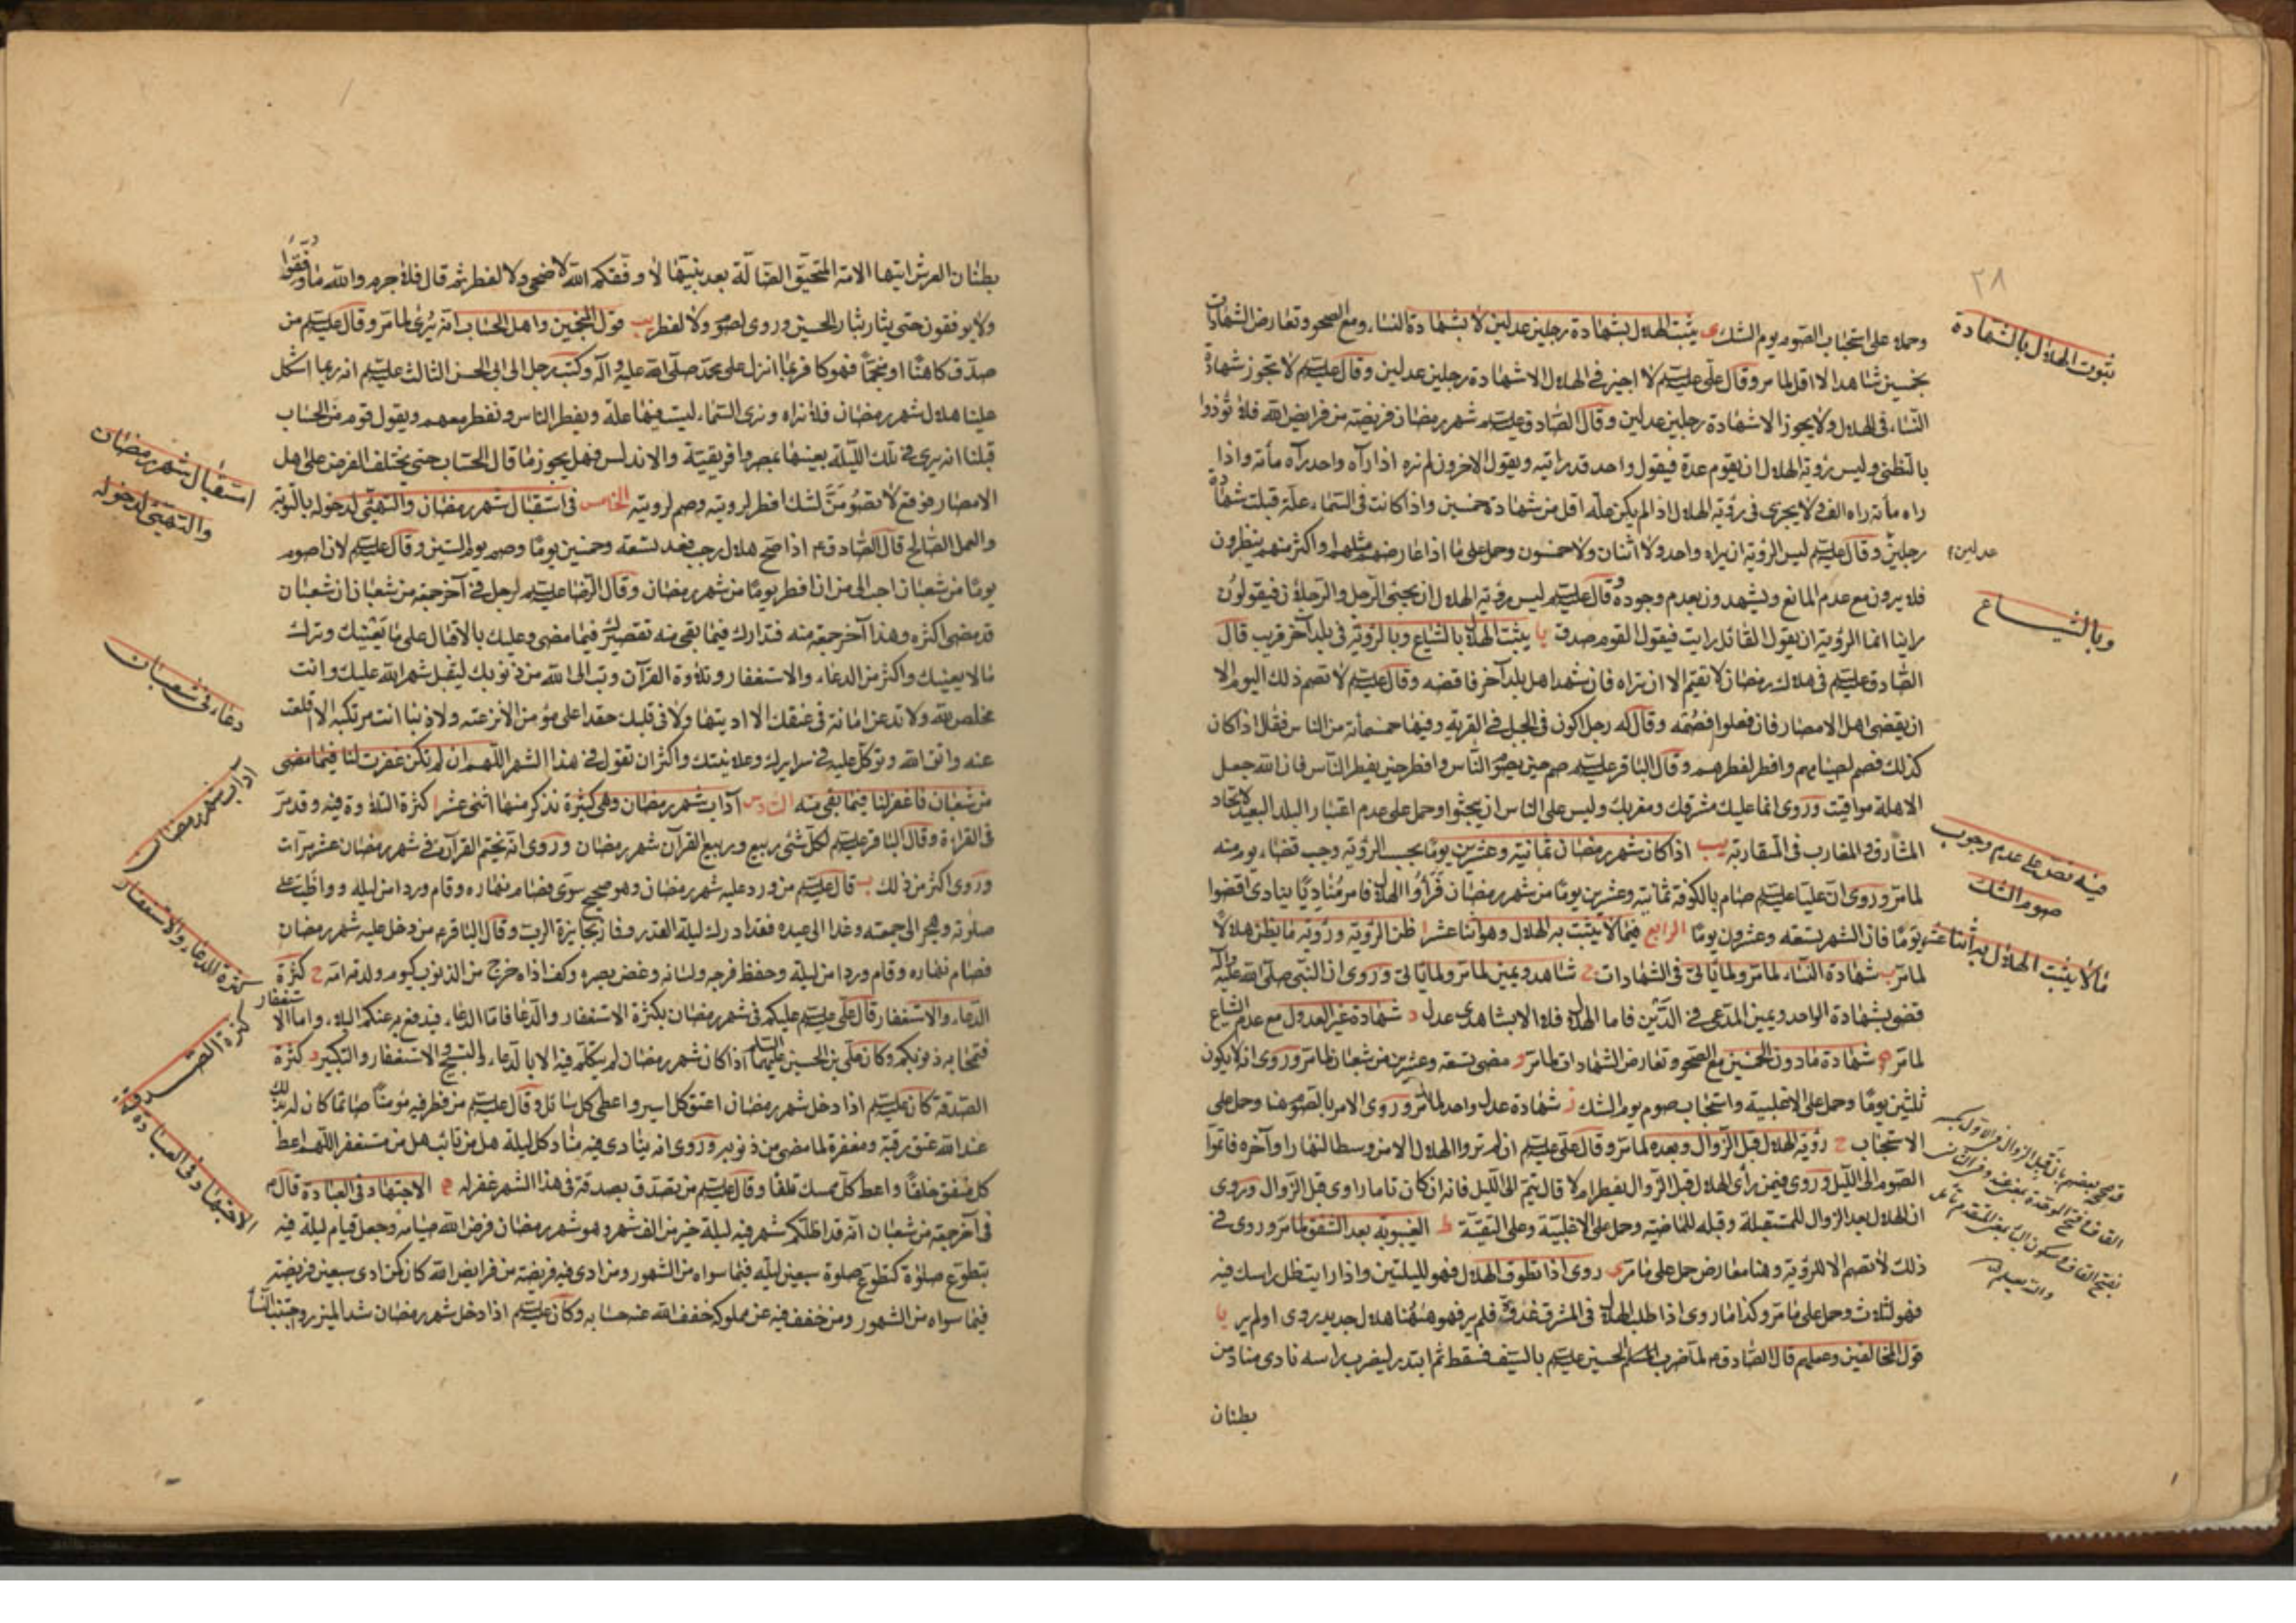 ٢٨
وحمله على استحباب الصوم يوم الشك ى يثبت الهلال بشهادة رجلين عدلين لا بشهادة النساء ومع الصحو وتعارض الشهادات
بخمسين شاهدا لا اقل لما مر وقال على عليه السلم لا اجيز فى الهلال الا شهادة رجلين عدلين وقال عليه السلم لا تجوز شهادة
النساء فى الهلال ولا يجوز الا شهادة رجلين عدلين وقال الصادق عليه السلم شهر رمضان فريضة من فرايض الله فلا تؤدوا
بالتظنى وليس رؤية الهلال ان يقوم عدة فيقول واحد قد رايته ويقول الاخرون لم نره اذا رآه واحد رآه مأة واذا
راه مأة راه الف ولا يجزى فى رؤية الهلال اذا لم يكن علة اقل من شهادة خمسين واذا كانت فى السماء علة قبلت شهادة
رجلين وقال عليه السلم ليس الرؤية ان يراه واحد ولا اثنان ولا خمسون وحمل على ما اذا عارضهم مثلهم او اكثر منهم ينظرون
فلا يرون مع عدم المانع ويشهدون بعدم وجوده وقال عليه السلم ليس رؤية الهلال ان يجيئ الرجل والرجلان فيقولون
راينا انما الرؤية ان يقول القائل رايت فيقول القوم صدق يا يثبت الهلال بالشياع وبالرؤية فى بلد آخر قريب قال
الصادق عليه السلم فى هلال رمضان لا تقيم الا ان تراه فان شهد اهل بلد آخر فاقضه وقال عليه السلم لا تصم ذلك اليوم الا
ان يقضى اهل الامصار فان فعلوا فصمه وقال له رجل اكون فى الجبل فى القرية وفيها خمسمأة من الناس فقال اذا كان
كذلك فصم لصيامهم وافطر لفطرهم وقال الباقر عليه السلم صم حين يصوم الناس وافطر حين يفطر الناس فان الله جعل
الاهلة مواقيت وروى انما عليك مشرقك ومغربك وليس على الناس ان يبحثوا وحمل على عدم اعتبار البلد البعيد لاتحاد
المشارق والمغارب فى المتقاربة يب اذا كان شهر رمضان ثمانية وعشرين يوما بحسب الرؤية وجب قضاء يوم منه
لما مر وروى ان عليا عليه السلم صام بالكوفة ثمانية وعشرين يوما من شهر رمضان فرأوا الهلال فامر مناديا ينادى اقضوا
يوما فان الشهر تسعة وعشرون يوما الرابع فيما لا يثبت به الهلال وهو اثنا عشر ا ظن الرؤية ورؤية ما يظن هلالا
لما مر ب شهادة النساء لما مر ولما ياتى فى الشهادات ج شاهد ويمين لما مر ولما ياتى وروى ان النبى صلى الله عليه وآله
قضى بشهادة الواحد ويمين المدعى فى الدين فاما الهلال فلا الا بشاهدى عدل د شهادة غير العدول مع عدم الشياع
لما مر ه شهادة مادون الخمسين مع الصحو وتعارض الشهادات لما مر و مضى تسعة وعشرين من شعبان لما مر وروى انه لا يكون
ثلثين يوما وحمل على الاغلبية واستحباب صوم يوم الشك ز شهادة عدل واحد لما مر وروى الامر بالصوم هنا وحمل على
الاستحباب ح رؤية الهلال قبل الزوال وبعده لما مر وقال على عليه السلم ان لم تروا الهلال الا من وسط النهار او آخره فاتموا
الصوم الى الليل وروى فيمن رأى الهلال قبل الزوال يفطر ام لا قال يتم الى الليل فانه ان كان تاما راوى قبل الزوال وروى
ان الهلال بعد الزوال للمستقبلة وقبله للماضية وحمل على الاغلبية وعلى التقية ط الغيبوبة بعد الشفق لما مر وروى فى
ذلك لا تصم الا للرؤية وهنا معارض حمل على ما مر ى روى اذا تطوق الهلال فهو لليلتين واذا رايت ظل راسك فيه
فهو لثلاث وحمل على ما مر وكذا ما روى اذا طلب الهلال فى المشرق غدوة فلم ير فهو ههنا هلال جديد رؤى او لم ير يا
قول المخالفين وعملهم قال الصادق ع لما ضرب الحسين عليه السلم بالسيف فسقط ثم ابتدر ليضرب راسه نادى مناد من
بطنان
ثبوت الهلال بالشهادة
عدلين
وبالشياع
فيه نص على عدم وجوب
صوم الشك
ما لا يثبت الهلال به اثنا عشر
بطنان العرش ايتها الامة المتحيرة الضالة بعد نبيها لا وفقكم الله لاضحى ولا لفطر ثم قال فلا جرم والله ما وفقوا
ولا يوفقون حتى يثار بثار الحسين وروى لصوم ولا لفطر يب قول المنجمين واهل الحساب انه يرى لما مر وقال عليه السلم من
صدق كاهنا او منجما فهو كافر بما انزل على محمد صلى الله عليه وآله وكتب رجل الى ابى الحسن الثالث عليه السلم انه ربما اشكل
علينا هلال شهر رمضان فلا نراه ونرى السماء ليست فيها علة ويفطر الناس ونفطر معهم ويقول قوم من الحساب
قبلنا انه يرى فى تلك الليلة بعينها بمصر وافريقية والاندلس فهل يجوز ما قال الحساب حتى يختلف الفرض على اهل
الامصار فوقع لا تصومن لشك افطر لرويته وصم لرويته الخامس فى استقبال شهر رمضان والتهيئ لدخوله بالتوبة
والعمل الصالح قال الصادق ع اذا صح هلال رجب فعد تسعة وخمسين يوما وصم يوم الستين وقال عليه السلم لان اصوم
يوما من شعبان احب الى من ان افطر يوما من شهر رمضان وقال الرضا عليه السلم لرجل فى آخر جمعة من شعبان ان شعبان
قد مضى اكثره وهذا آخر جمعة منه فتدارك فيما بقى منه تقصيرك فيما مضى وعليك بالاقبال على ما يعنيك وترك
مالا يعنيك واكثر من الدعاء والاستغفار وتلاوة القرآن وتب الى الله من ذنوبك ليقبل شهر الله عليك وانت
مخلص لله ولا تدعن امانة فى عنقك الا اديتها ولا فى قلبك حقدا على مؤمن الا نزعته ولا ذنبا انت مرتكبه الا اقلعت
عنه واتق الله وتوكل عليه فى سرايرك وعلانيتك واكثر ان تقول فى هذا الشهر اللهم ان لم تكن غفرت لنا فيما مضى
من شعبان فاغفر لنا فيما بقى منه السادس آداب شهر رمضان وهى كثيرة نذكر منها اثنى عشر ا كثرة التلاوة فيه وقد مر
فى القراءة وقال الباقر عليه السلم لكل شئ ربيع وربيع القرآن شهر رمضان وروى انه يختم القرآن فى شهر رمضان عشر مرات
وروى اكثر من ذلك ب قال عليه السلم من ورد عليه شهر رمضان وهو صحيح سوى فصام نهاره وقام وردا من ليله وواظب على
صلوته وهجر الى جمعته وغدا الى عيده فقد ادرك ليلة القدر وفاز بجايزة الرب وقال الباقر ع من دخل عليه شهر رمضان
فصام نهاره وقام وردا من ليله وحفظ فرجه ولسانه وغض بصره وكف اذاه خرج من الذنوب كيوم ولدته امه ج كثرة
الدعاء والاستغفار قال على عليه السلم عليكم فى شهر رمضان بكثرة الاستغفار والدعاء فاما الدعاء فيدفع به عنكم البلاء واما الاستغفار
فتمحا به ذنوبكم وكان على بن الحسين عليهما السلم اذا كان شهر رمضان لم يتكلم فيه الا بالدعاء والتسبيح والاستغفار والتكبير د كثرة
الصدقة كان عليه السلم اذا دخل شهر رمضان اعتق كل اسير واعطى كل سائل وقال عليه السلم من فطر فيه مؤمنا صائما كان له بذلك
عند الله عتق رقبة ومغفرة لما مضى من ذنوبه وروى انه ينادى فيه مناد كل ليلة هل من تائب هل من مستغفر اللهم اعط
كل منفق خلفا واعط كل ممسك تلفا وقال عليه السلم من تصدق بصدقة فى هذا الشهر غفر له ه الاجتهاد فى العبادة قال ع
فى آخر جمعة من شعبان انه قد اظلكم شهر فيه ليلة خير من الف شهر وهو شهر رمضان فرض الله صيامه وجعل قيام ليلة فيه
بتطوع صلوة كتطوع صلوة سبعين ليلة فيما سواه من الشهور ومن ادى فيه فريضة من فرايض الله كان كمن ادى سبعين فريضة
فيما سواه من الشهور ومن خفف فيه عن مملوكه خفف الله عنه حسابه وكان عليه السلم اذا دخل شهر رمضان شد الميزر واجتنب النساء
استقبال شهر رمضان
والتهيئ لدخوله
دعاء فى شعبان
آداب شهر رمضان
كثرة الدعاء والاستغفار
كثرة الصدقة
الاجتهاد فى العبادة